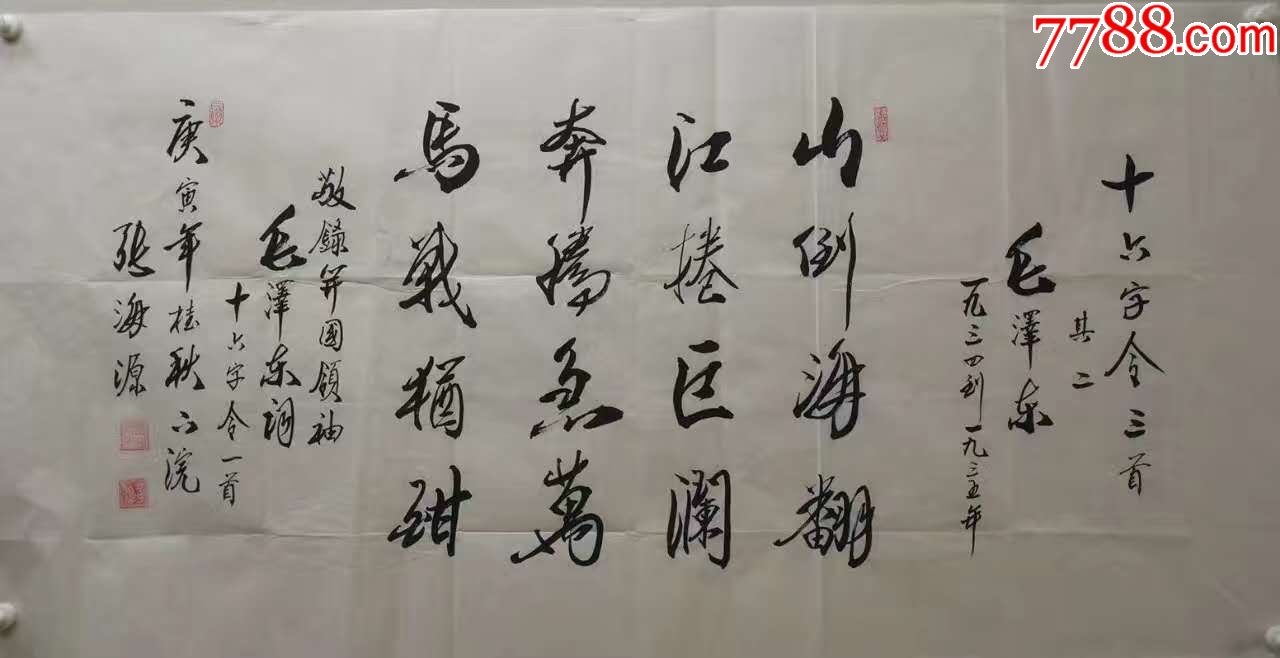 7788.com
十六字令三首
其二
毛澤东
一九三四到一九三五年
山倒海翻
江捲巨瀾
奔騰急萬
馬戰猶酣
敬録开國領袖
毛澤东詞
十六字令一首
庚寅年桂秋下浣
張海源